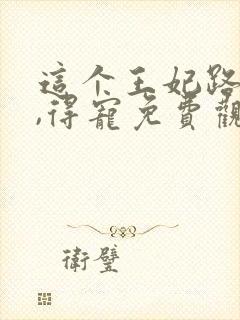 這个王妃路
,得寵免費觀
衛璧